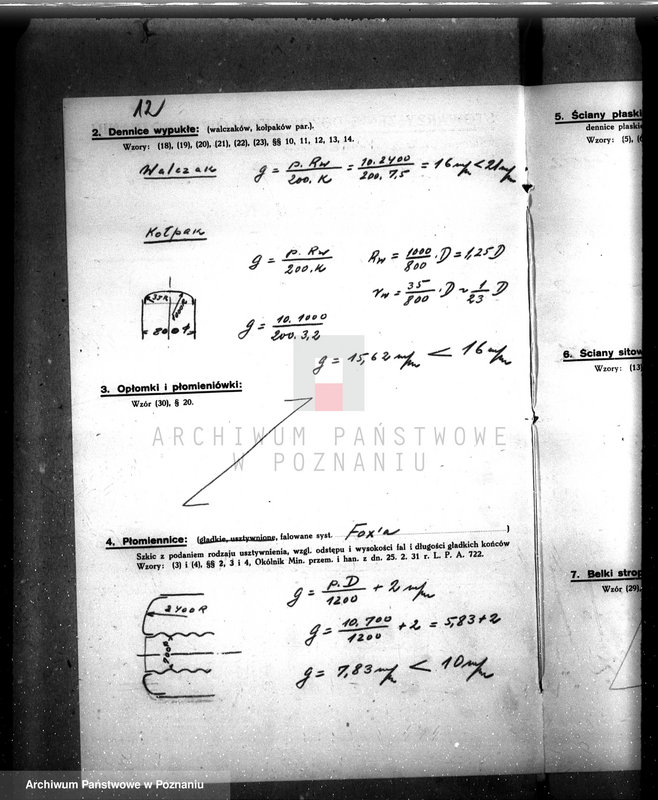 12
2. Dennice wypukłe: (walczaków, kołpaków par.).
Wzory: (18), (19), (20), (21), (22), (23), §§ 10, 11, 12, 13, 14.
Walczak g = p. Rw / 200. K = 10. 2400 / 200. 7,5 = 16 m/m < 21 m/m
Kołpak
g = p. Rw / 200. K Rw = 1000 / 800 . D = 1,25 D
rw = 35 / 800 . D ~ 1 / 23 D
35 R
1000 R
800
g = 10. 1000 / 200. 3,2
g = 15,62 m/m < 16 m/m
3. Opłomki i płomieniówki:
Wzór (30), § 20.
ARCHIWUM PAŃSTWOWE
W POZNANIU
4. Płomiennice: (gładkie, usztywnione, falowane syst. Fox'a )
Szkic z podaniem rodzaju usztywnienia, wzgl. odstępu i wysokości fal i długości gładkich końców
Wzory: (3) i (4), §§ 2, 3 i 4, Okólnik Min. przem. i han. z dn. 25. 2. 31 r. L. P. A. 722.
2400 R
700
g = p. D / 1200 + 2 m/m
g = 10. 700 / 1200 + 2 = 5,83 + 2
g = 7,83 m/m < 10 m/m
5. Ściany płaski
dennice płaskie
Wzory: (5), (6
6. Ściany sitow
Wzory: (13)
7. Belki strop
Wzór (29),
Archiwum Państwowe w Poznaniu